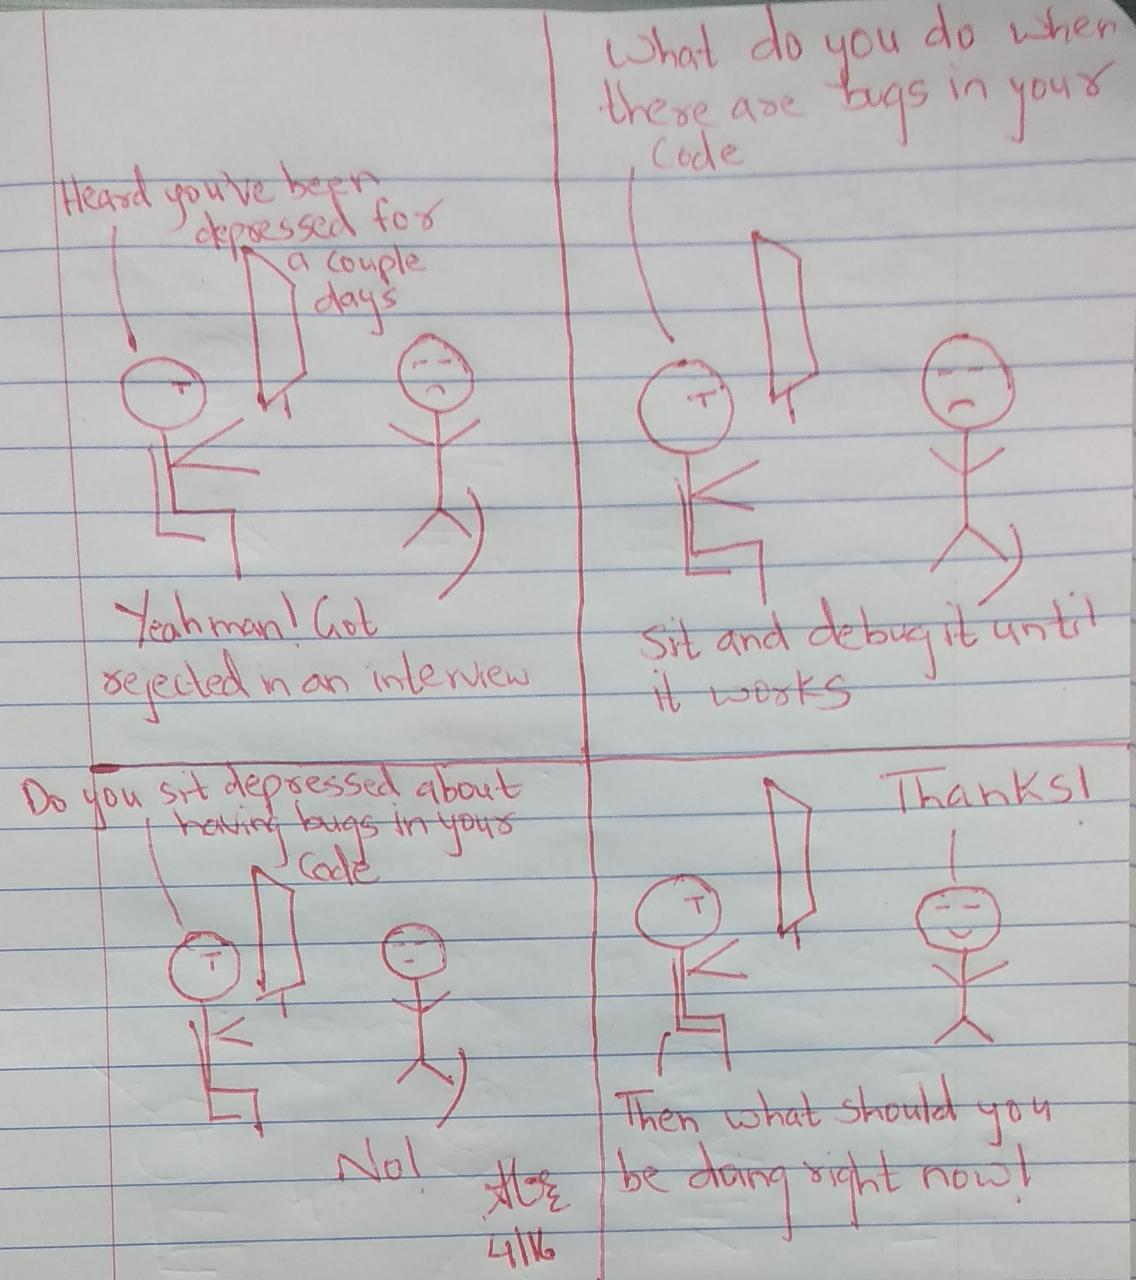 Heard you've been
depressed for
a couple
days
Yeah man! Got
rejected in an interview
What do you do when
there are bugs in your
Code
Sit and debug it until
it works
Do you sit depressed about
having bugs in your
Code
No!
4/16
Thanks!
Then what should you
be doing right now!